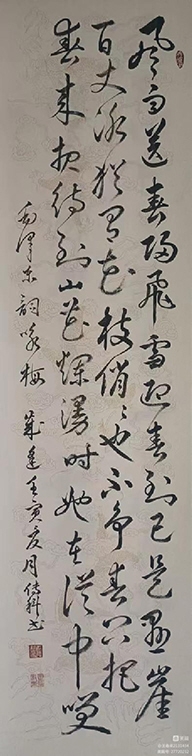 风雨送春归飞雪迎春到已是悬崖
百丈冰犹有花枝俏〻也不争春只把
春来报待到山花烂漫时她在丛中笑
毛泽东词咏梅 岁逢壬寅夏月 书